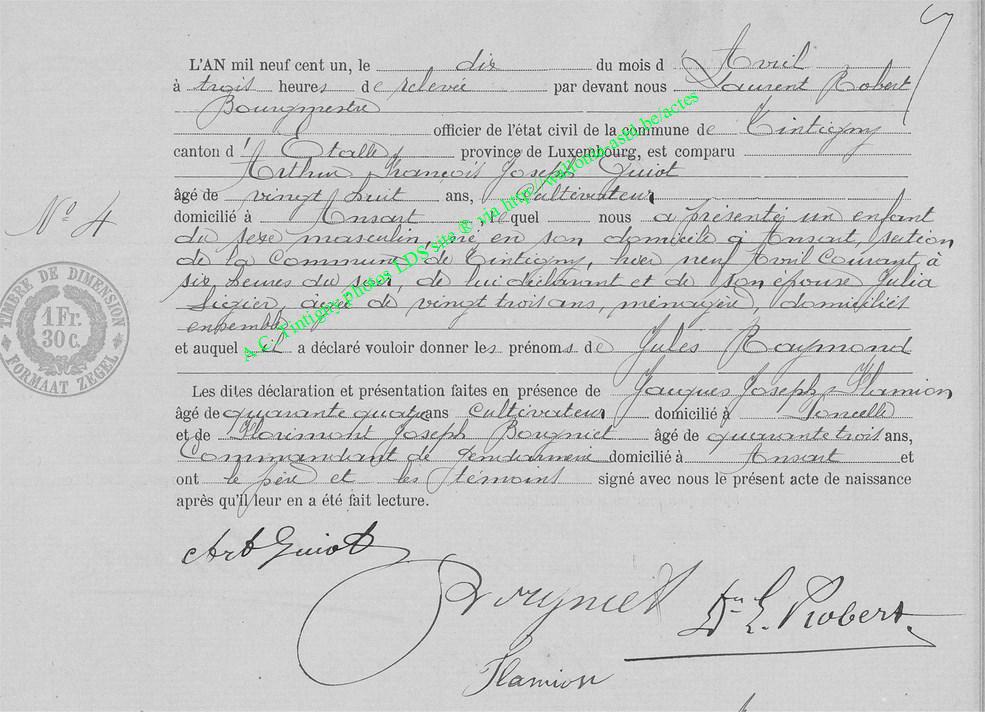 L'AN mil neuf cent un, le dix du mois d'Avril
à trois heures de relevée par devant nous Laurent Robert
Bourgmestre
officier de l'état civil de la commune de Tintigny
canton d'Etalle, province de Luxembourg, est comparu
Arthur François Joseph Guiot
âgé de vingt huit ans, Cultivateur
domicilié à Ansart, lequel nous a présenté un enfant
du sexe masculin, né en son domicile à Ansart, section
de la Commune de Tintigny, hier neuf Avril Courant, à
six heures du soir, de lui déclarant et de son épouse Julia
âgée de vingt trois ans, ménagère domiciliés
ensemble
et auquel il a déclaré vouloir donner les prénoms de Jules Raymond
Les dites déclaration et présentation faites en présence de Jacques Joseph Flamion
âgé de quarante quatre ans Cultivateur domicilié à Poncelle
et de Florimont Joseph Borgniet âgé de quarante trois ans,
Commandant de gendarmerie domicilié à Ansart et
ont le père et les témoins signé avec nous le présent acte de naissance
après qu'il leur en a été fait lecture.
No 4
TIMBRE DE DIMENSION
1 Fr.
30 c.
FORMAAT ZEGEL
A.C. Tintigny photos LDS site ® via http://wallonia-asbl.be/actes
Art Guiot
Borgniet
Dr L. Robert
Flamion